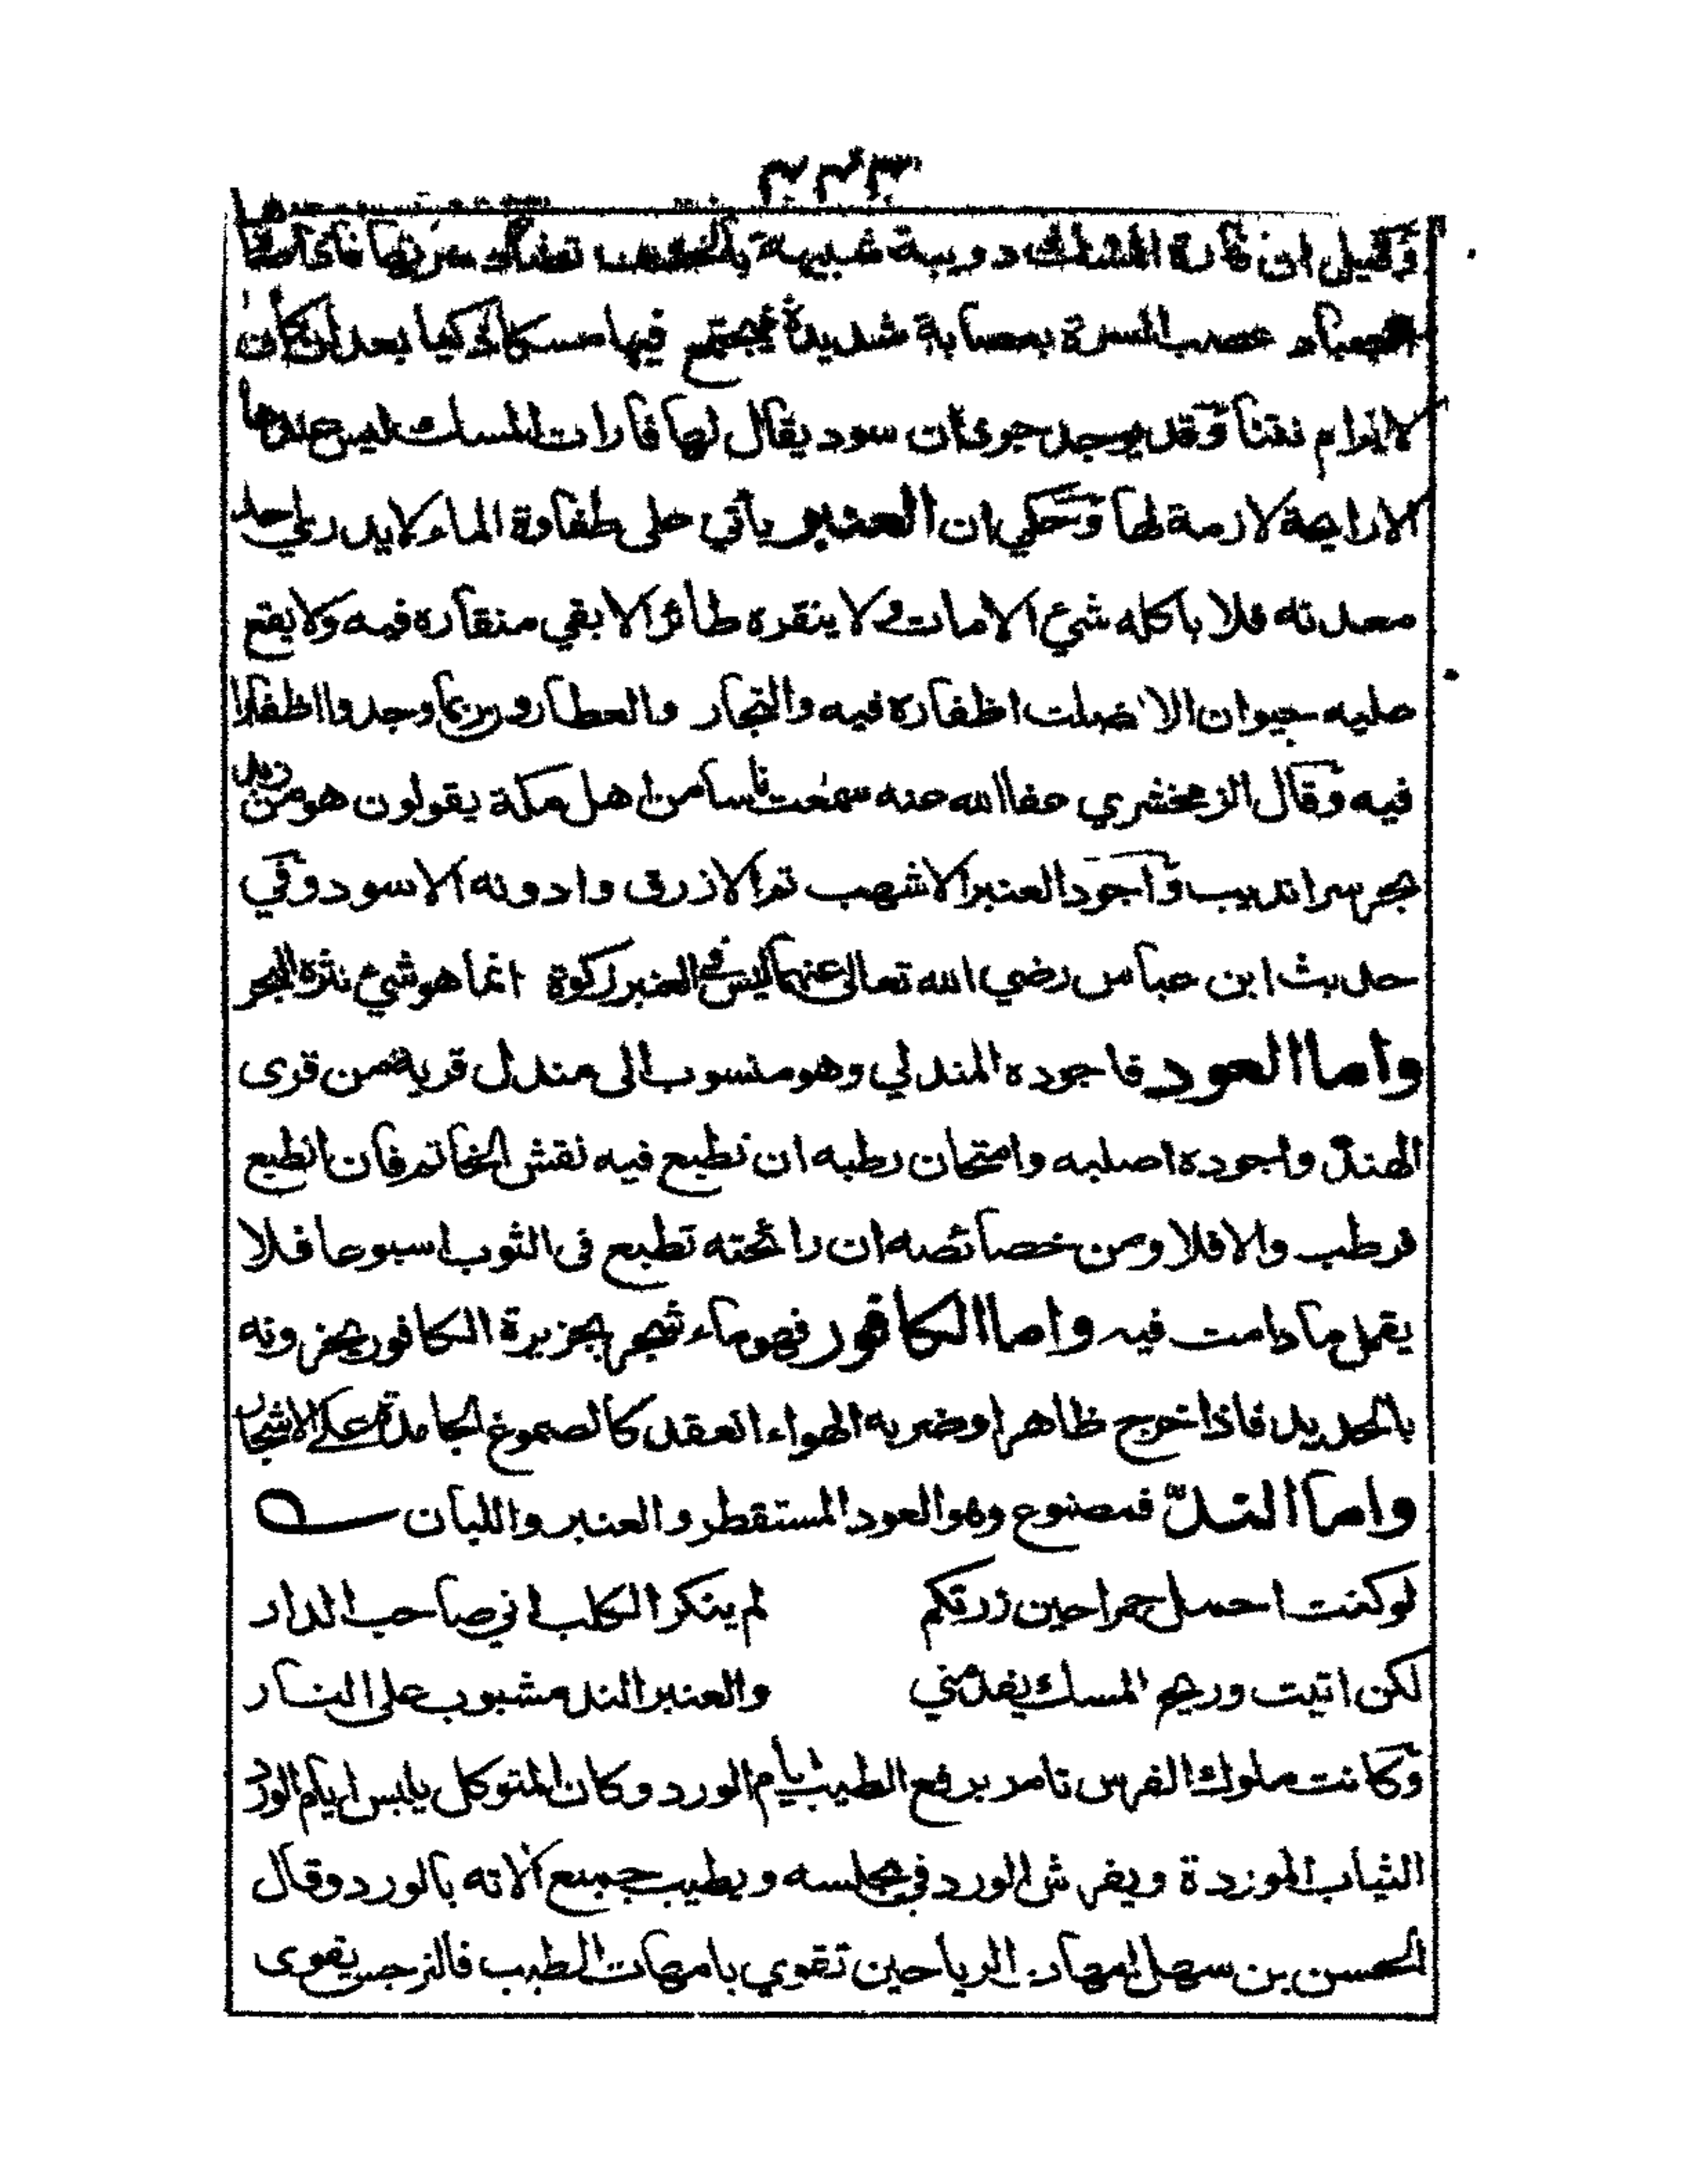 وقيل ان فارة المسك دويبة شبيهة بالخشف
الصياد عصب السرة بعصابة شديدة فيجتمع فيها مسكا ذكيا بعد ان كان
لا يرام نتنا وقد يوجد جرذان سود يقال لها فارات المسك ليس عندها
الا رايحة لازمة لها وحكي ان العنبر يأتي على طفاوة الماء لا يدري احد
معدنه فلا ياكله شئ الا مات ولا ينقره طائر الا بقي منقاره فيه ولا يقع
عليه حيوان الا نصلت اظفاره فيه والتجار والعطارون ربما وجدوا اظفارا
فيه وقال الزمخشري عفا الله عنه سمعت ناسا من اهل مكة يقولون هو من زبد
بحر سرانديب وأجود العنبر الاشهب ثم الازرق وادونه الاسود وفي
حديث ابن عباس رضي الله تعالى عنهما ليس في العنبر زكوة انما هو شئ نثره البحر
واما العود فاجوده المندلي وهو منسوب الى مندل قرية من قرى
الهند واجوده اصلبه وامتحان رطبه ان تطبع فيه نقش الخاتم فان انطبع
فرطب والا فلا ومن خصائصه ان رائحته تطبع في الثوب اسبوعا فلا
يقمل ما دامت فيه واما الكافور فهو ماء شجر بجزيرة الكافور يحزونه
بالحديد فاذا خرج ظاهرا وضربه الهواء انعقد كالصموغ الجامدة على الاشجار
واما الندّ فمصنوع وهو العود المستقطر والعنبر واللبان
لو كنت احمل خمرا حين زرتكم لم ينكر الكلب اني صاحب الدار
لكن اتيت وريح المسك يفدمني والعنبر الند مشبوب على النار
وكانت ملوك الفرس تامر برفع الطيب ايام الورد وكان المتوكل يلبس ايام الورد
الثياب الموردة ويفرش الورد في مجلسه ويطيب جميع آلاته بالورد وقال
الحسن بن سهل امهات الرياحين تقوي بامهات الطيب فالنرجس يقوى